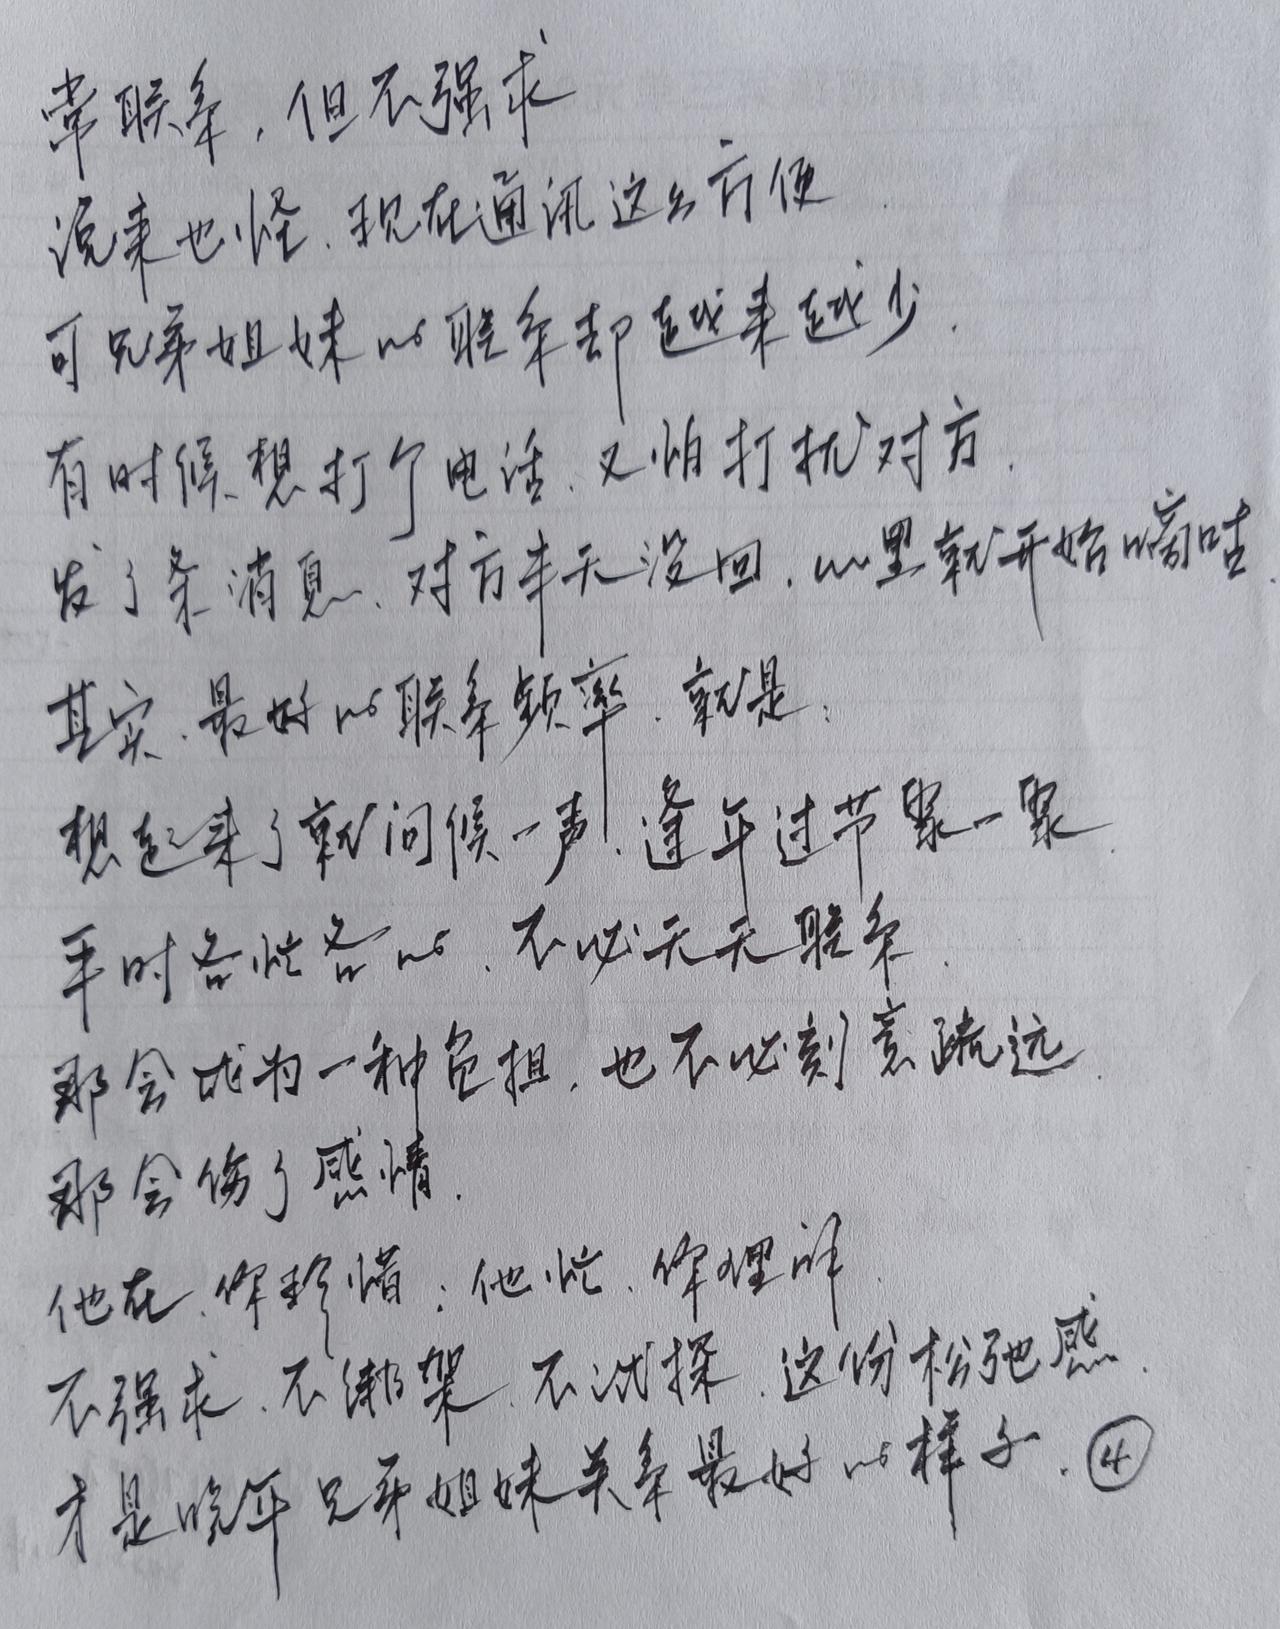 常联系，但不强求
说来也怪、现在通讯这么方便
可兄弟姐妹的联系却越来越少.
有时候想打个电话、又怕打扰对方.
发了条消息、对方半天没回、心里就开始嘀咕.
其实、最好的联系频率、就是：
想起来了就问候一声、逢年过节聚一聚.
平时各忙各的、不必天天联系.
那会成为一种负担、也不必刻意疏远.
那会伤了感情.
他在、你珍惜；他忙、你理解.
不强求、不绑架、不试探、这份松弛感.
才是晚年兄弟姐妹关系最好的样子. ④